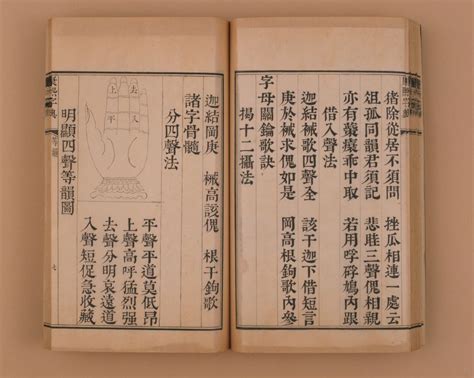 猪除從居不須問 挫瓜相連一處云
俎孤同韻君須記 悲三聲傀相親
亦有乖中取 若用鳩內跟
借入聲法
迦結祴歌四聲全 該干迦下借短言
庚於祴求傀如是 岡高根鉤歌內參
字母關鑰歌訣
揭十二攝法
迦結岡庚 祴高該傀 根干鉤歌
諸字骨髓
分四聲法
平聲平道莫低昂
上聲高呼猛烈強
去聲分明哀遠道
入聲短促急收藏
上 去
平 入
明顯四聲等韻圖
等韻